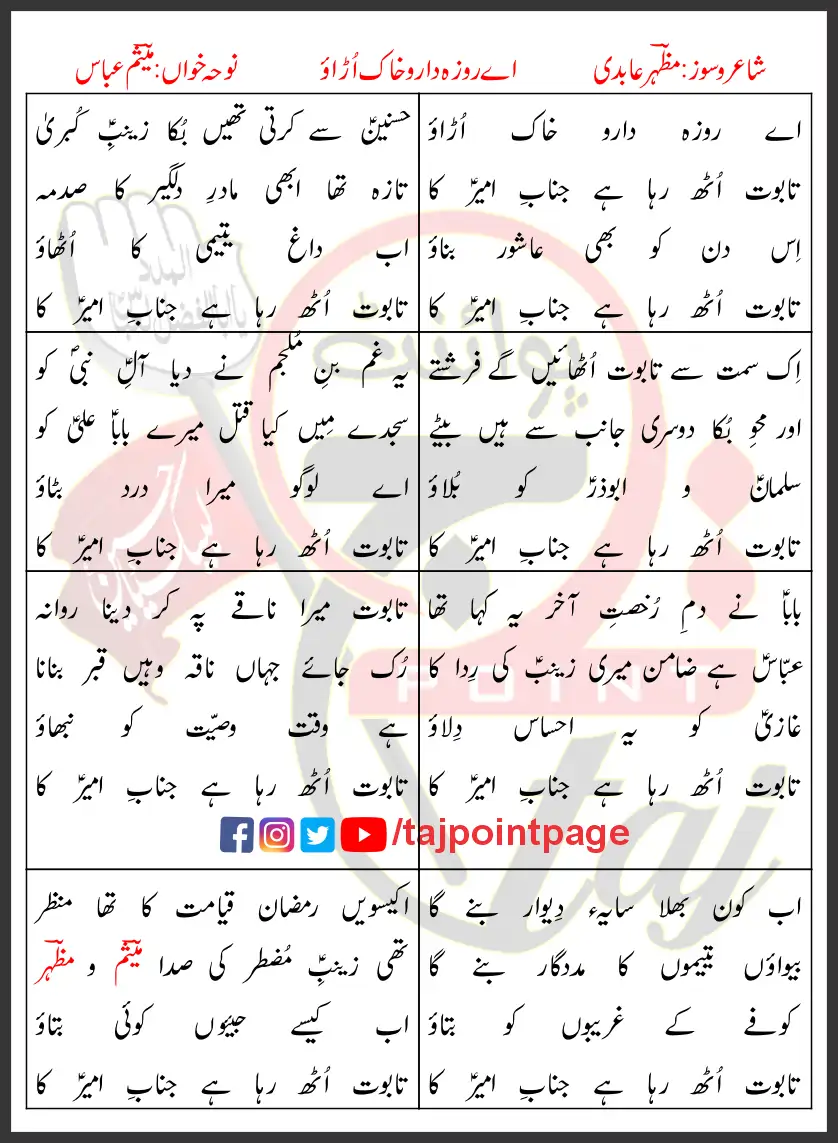 شاعر و سوز: مظہر عابدی اے روزہ دارو خاک اُڑاؤ نوحہ خواں: میثم عباس
اے روزہ دارو خاک اُڑاؤ
تابوت اُٹھ رہا ہے جنابِ امیرؑ کا
اِس دن کو بھی عاشور بناؤ
تابوت اُٹھ رہا ہے جنابِ امیرؑ کا
حسنینؑ سے کرتی تھیں بُکا زینبِؑ کُبریٰ
تازہ تھا ابھی مادرِ دلگیر کا صدمہ
اب داغ یتیمی کا اُٹھاؤ
تابوت اُٹھ رہا ہے جنابِ امیرؑ کا
اِک سمت سے تابوت اُٹھائیں گے فرشتے
اور محوِ بُکا دوسری جانب سے ہیں بیٹے
سلمانؑ و ابوذرؑ کو بُلاؤ
تابوت اُٹھ رہا ہے جنابِ امیرؑ کا
یہ غم بنِ مُلجم نے دیا آلِؑ نبیؐ کو
سجدے میں کیا قتل میرے باباؑ علیؑ کو
اے لوگو میرا درد بٹاؤ
تابوت اُٹھ رہا ہے جنابِ امیرؑ کا
باباؑ نے دمِ رُخصتِ آخر یہ کہا تھا
عبّاسؑ ہے ضامن میری زینبؑ کی رِدا کا
غازیؑ کو یہ احساس دِلاؤ
تابوت اُٹھ رہا ہے جنابِ امیرؑ کا
تابوت میرا ناقے پہ کر دینا روانہ
رُک جائے جہاں ناقہ وہیں قبر بنانا
ہے وقت وصیّت کو نبھاؤ
تابوت اُٹھ رہا ہے جنابِ امیرؑ کا
/tajpointpage
اب کون بھلا سایہء دِیوار بنے گا
بیواؤں یتیموں کا مددگار بنے گا
کوفے کے غریبوں کو بتاؤ
تابوت اُٹھ رہا ہے جنابِ امیرؑ کا
اکیسویں رمضان قیامت کا تھا منظر
تھی زینبِؑ مُضطر کی صدا میثم و مظہر
اب کیسے جیئوں کوئی بتاؤ
تابوت اُٹھ رہا ہے جنابِ امیرؑ کا
پوائنٹ
POINT
taj